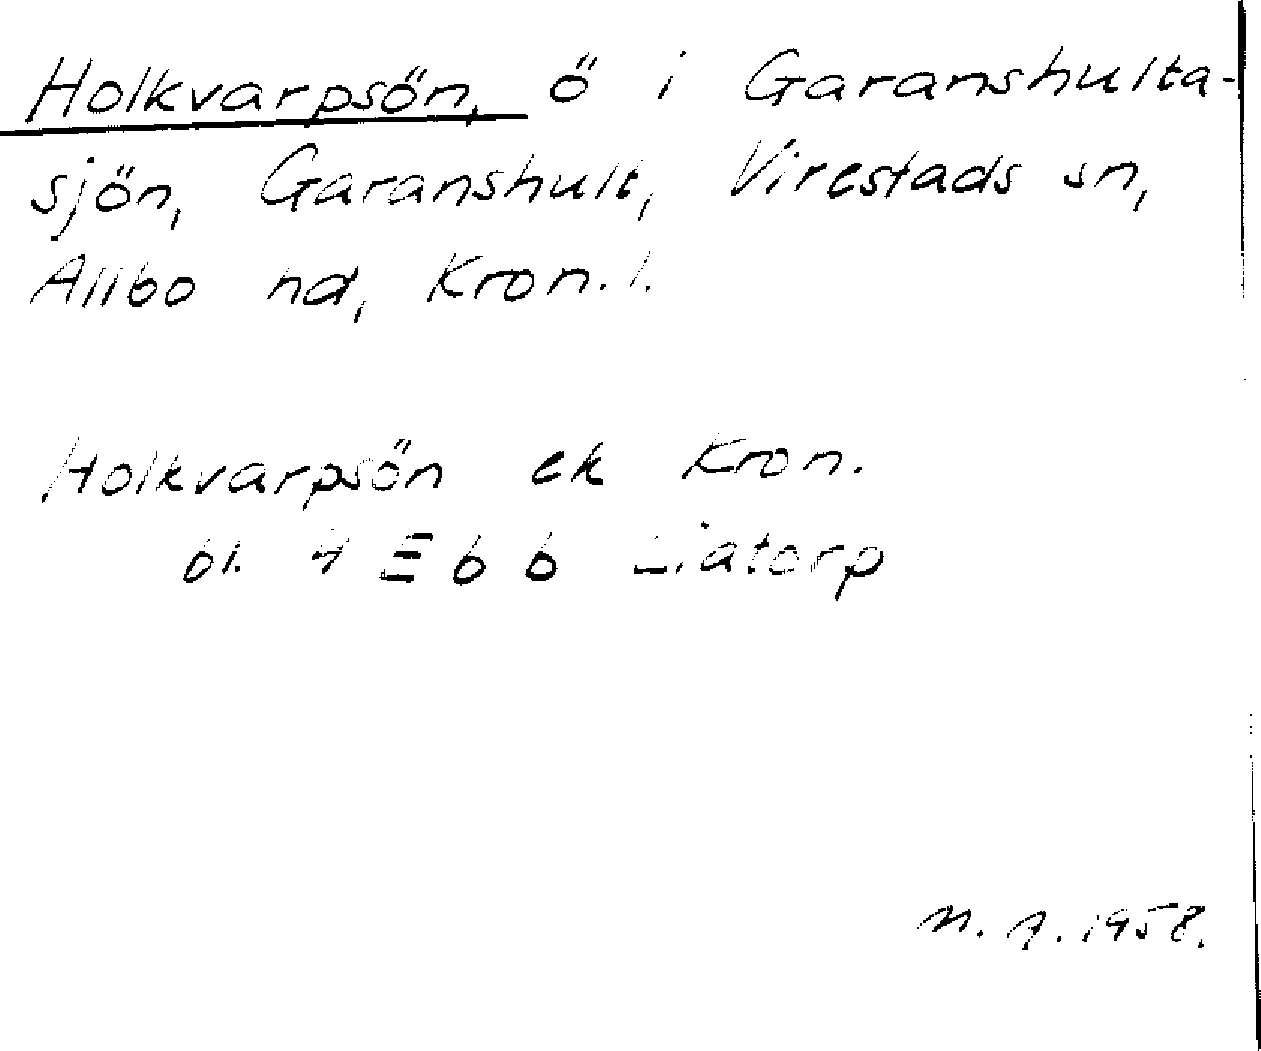 Holkvarpsön, ö i Garanshulta-
sjön, Garanshult, Virestads sn,
Allbo hd, Kron. l.
Holkvarpsön ek Kron.
bl. 4 E b b Liatorp
N. A. 1958.